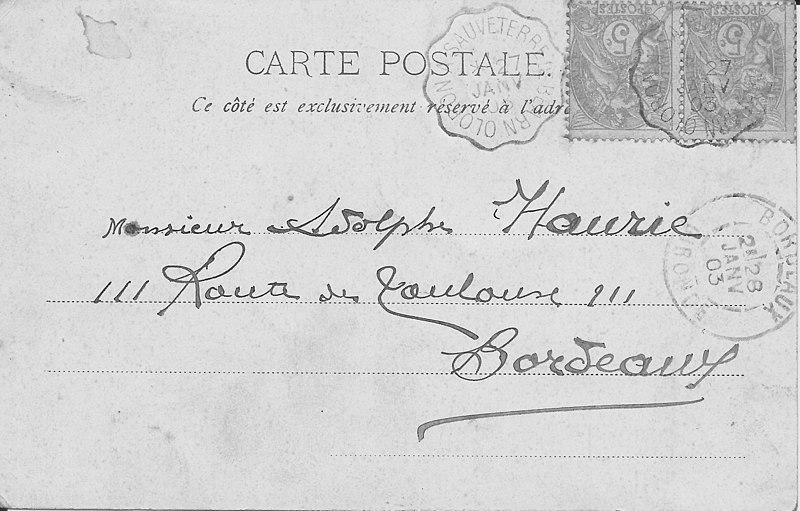 CARTE POSTALE.
Ce côté est exclusivement réservé à l'adre
SAUVETERRE BÉARN OLORON
27
JANV
5c
5c
POSTES
27
JANV
03
OLORON
Monsieur Adolphe Haurie
111 Route de Toulouse 111
Bordeaux
BORDEAUX GIRONDE
28
JANV
03